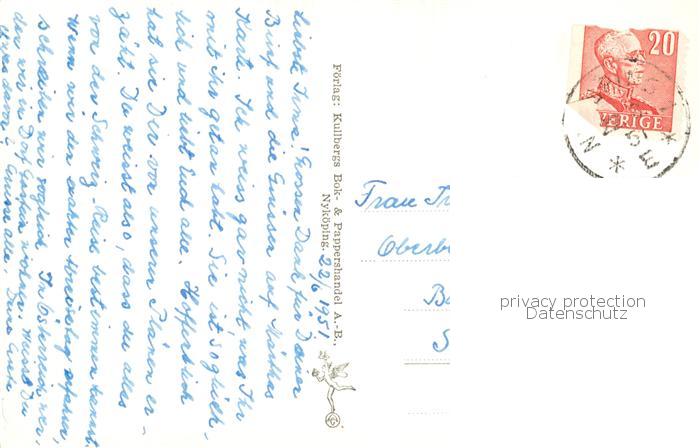 22/6 1951.
Liebste Irma! Grossen Dank für Deinen
Brief und die Grüsse auf Mathas
Karte. Ich weiss gar nicht was Ihr
mit ihr getan habt. Sie ist so glückl-
lich und liebt Euch alle. Hoffentlich
hat sie Dir von unseren Plänen er-
zählt. Du weisst also, dass du alles
vor der Schweiz-Reise bestimmen kannst.
Wenn wir den exakten Abreisetag erfahren,
schreiben wir sogleich. In Österreich wer-
den wir in Dorf Gastein wohnen. Musst Du
etwas davor? Grüsse alle, Deine
Förlag: Kullbergs Bok- & Pappershandel A.-B.,
Nyköping.
20
SVERIGE
Frau
Oberb
B
S
privacy protection
Datenschutz